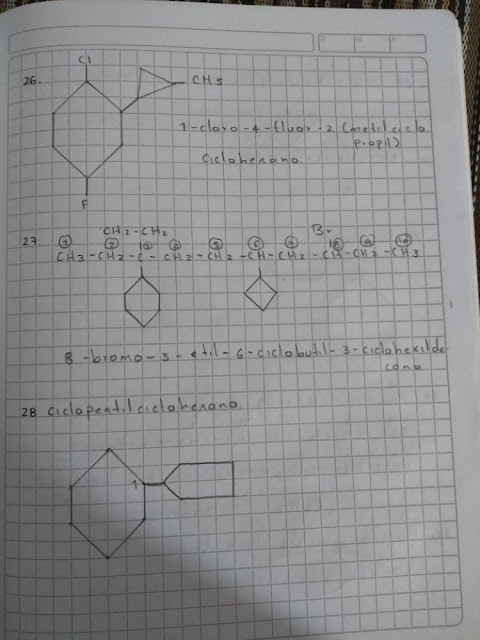 D M A
Cl
26. CH5
1-cloro-4-fluor-2 (metil ciclo
propil)
ciclohexano
F
CH2-CH2 Br
27 ① ② ③ ④ ⑤ ⑥ ⑦ ⑧ ⑨ ⑩
CH3-CH2-C-CH2-CH2-CH-CH2-CH-CH2-CH3
8-bromo-3-etil-6-ciclobutil-3-ciclohexilde
cano
28 ciclopentilciclohexano
1